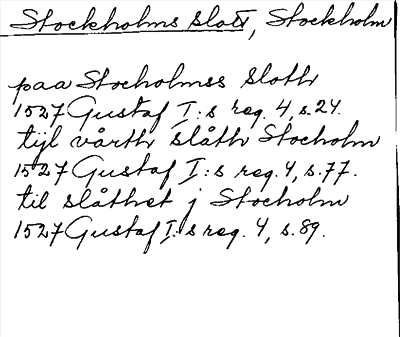 Stockholms slott, Stockholm
paa Stocholmss sloth
1527 Gustaf I:s reg. 4, s.24.
tijl vårth slåth Stocholm
1527 Gustaf I:s reg. 4, s.77.
til slåthet j Stocholm
1527 Gustaf I:s reg. 4, s.89.